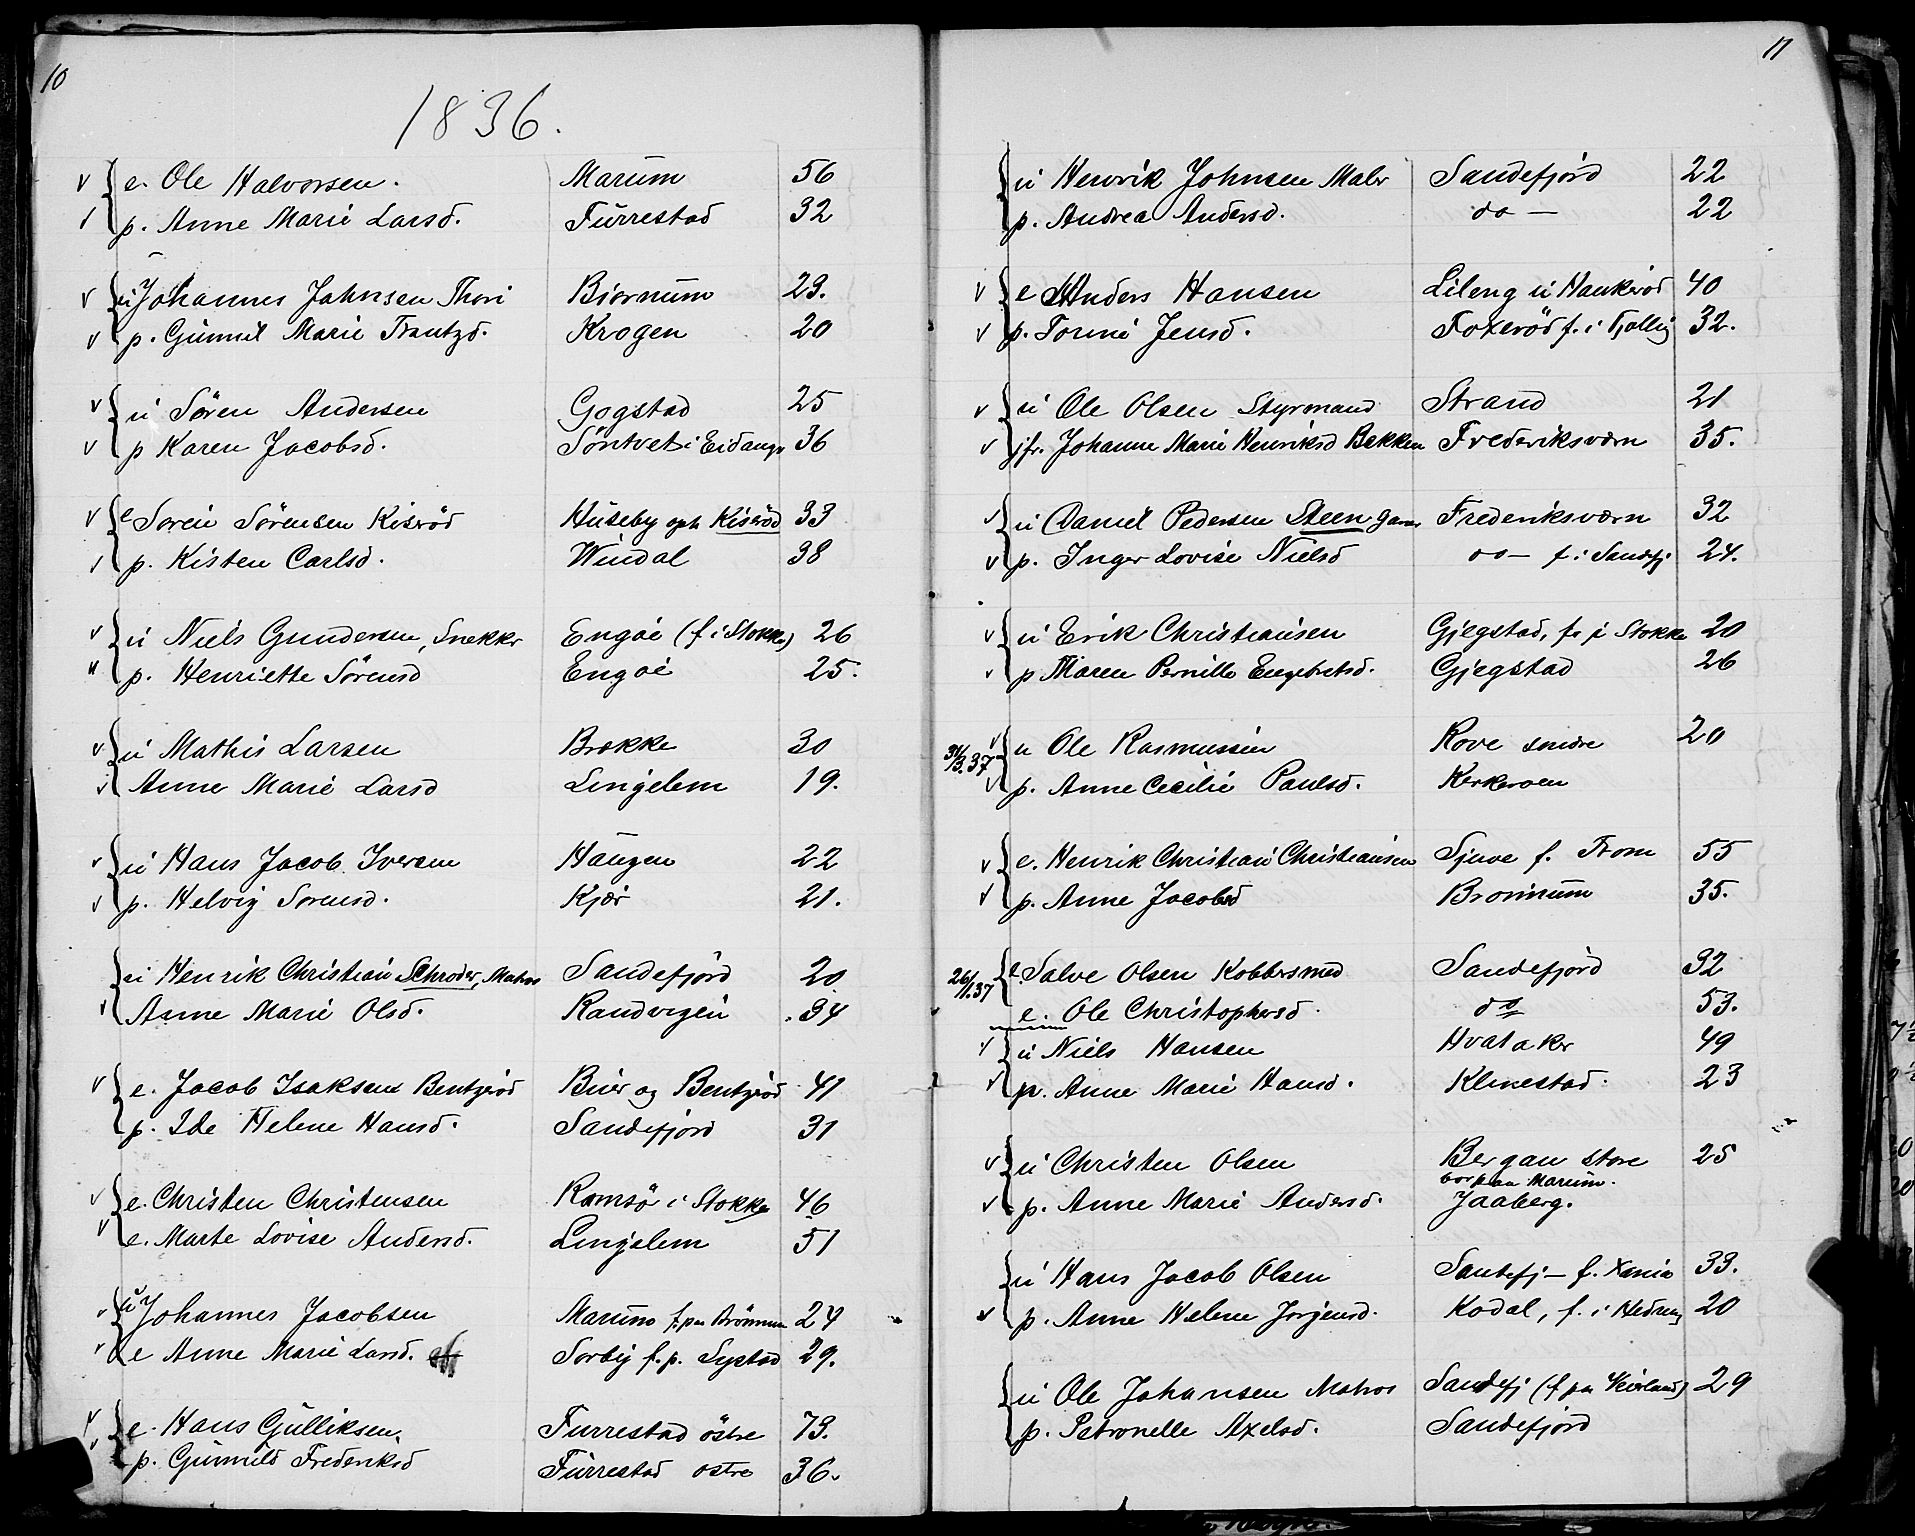 10
1836.
e. Ole Halvorsen. Marum 56
p. Anne Marie Larsd. Furrestad 32
u Johannes Johnsen Thori Bjornum 23.
p. Gunnil Marie Frantzd. Krogen 20
u Søren Andersen Gogstad 25
p Karen Jacobsd. Søntvet i Eidang 36
e Soren Sörensen Kisröd Huseby og Kisröd 33
p. Kisten Carlsd. Windal 38
u Niels Gundersen, Snekkr Engøe (f i Stokke) 26
p. Henriette Sörensd Engøe 25.
u Mathis Larsen Brekke 30
Anne Marie Larsd Lingelem 19.
u Hans Jacob Iversen Haugen 22
p. Helvig Sorensd. Kjær 21.
u Henrik Christian Schroder, Matros Sandefjord 20
Anne Marie Olsd. Randvigen 34
e. Jacob Isaksen Bentzröd Buer og Bentzröd 41
p. Ide Helene Hansd. Sandefjord 31
e. Christen Christensen Ramsö i Stokke 46
e. Marte Lovise Andersd. Lingelem 51
u Johannes Jacobsen Marum f. paa Brönnum 24
e Anne Marie Larsd. Sorby f. p. Lystad 29.
e. Hans Gulliksen. Furrestad östre 73.
p. Gunnild Frederiksd Furrestad ostre 36.
11
u Henrik Johnsen Maler Sandefjord 22
p. Andrea Andersd. do — 22
e Anders Hansen Lileng u Haukeröd 40
p. Torine Jensd. Foxeröd f. i Tjølling 32.
u Ole Olsen Styrmand Strand 21
jfr. Johanne Marie Henriksd Bekken Frederiksværn 35.
u Daniel Pedersen Steen Frederiksværn 32
p. Inger Lovise Nielsd do — f. i Sandefj 24.
u Erik Christiansen Gjegstad, f. i Stokke 20
p Maren Pernille Engebretsd. Gjegstad 26
31/3.37 u Ole Rasmussen Rove sondre 20
p. Anne Cecilie Paulsd. Kerkevoen
e. Henrik Christian Christiansen Sjuve f. Trom 55
p. Anne Jacobsd Bronnum 35.
26/1.37 e. Salve Olsen Kobbersmed Sandefjord 32
e. Ole Christophersd. do 53.
u Niels Hansen Hvataker 49
p. Anne Marie Hansd. Klinestad. 23
u Christen Olsen Bergan store 25
bor paa Marum.
p. Anne Marie Andersd. Jaaberg.
u Hans Jacob Olsen Sandefj — f. Xania 33.
p. Anne Helene Jorgensd. Kodal, f. i Hedrum 20
u Ole Johansen Matros Sandefj (f paa Veierland) 29
p. Petronelle Axelsd. Sandefjord